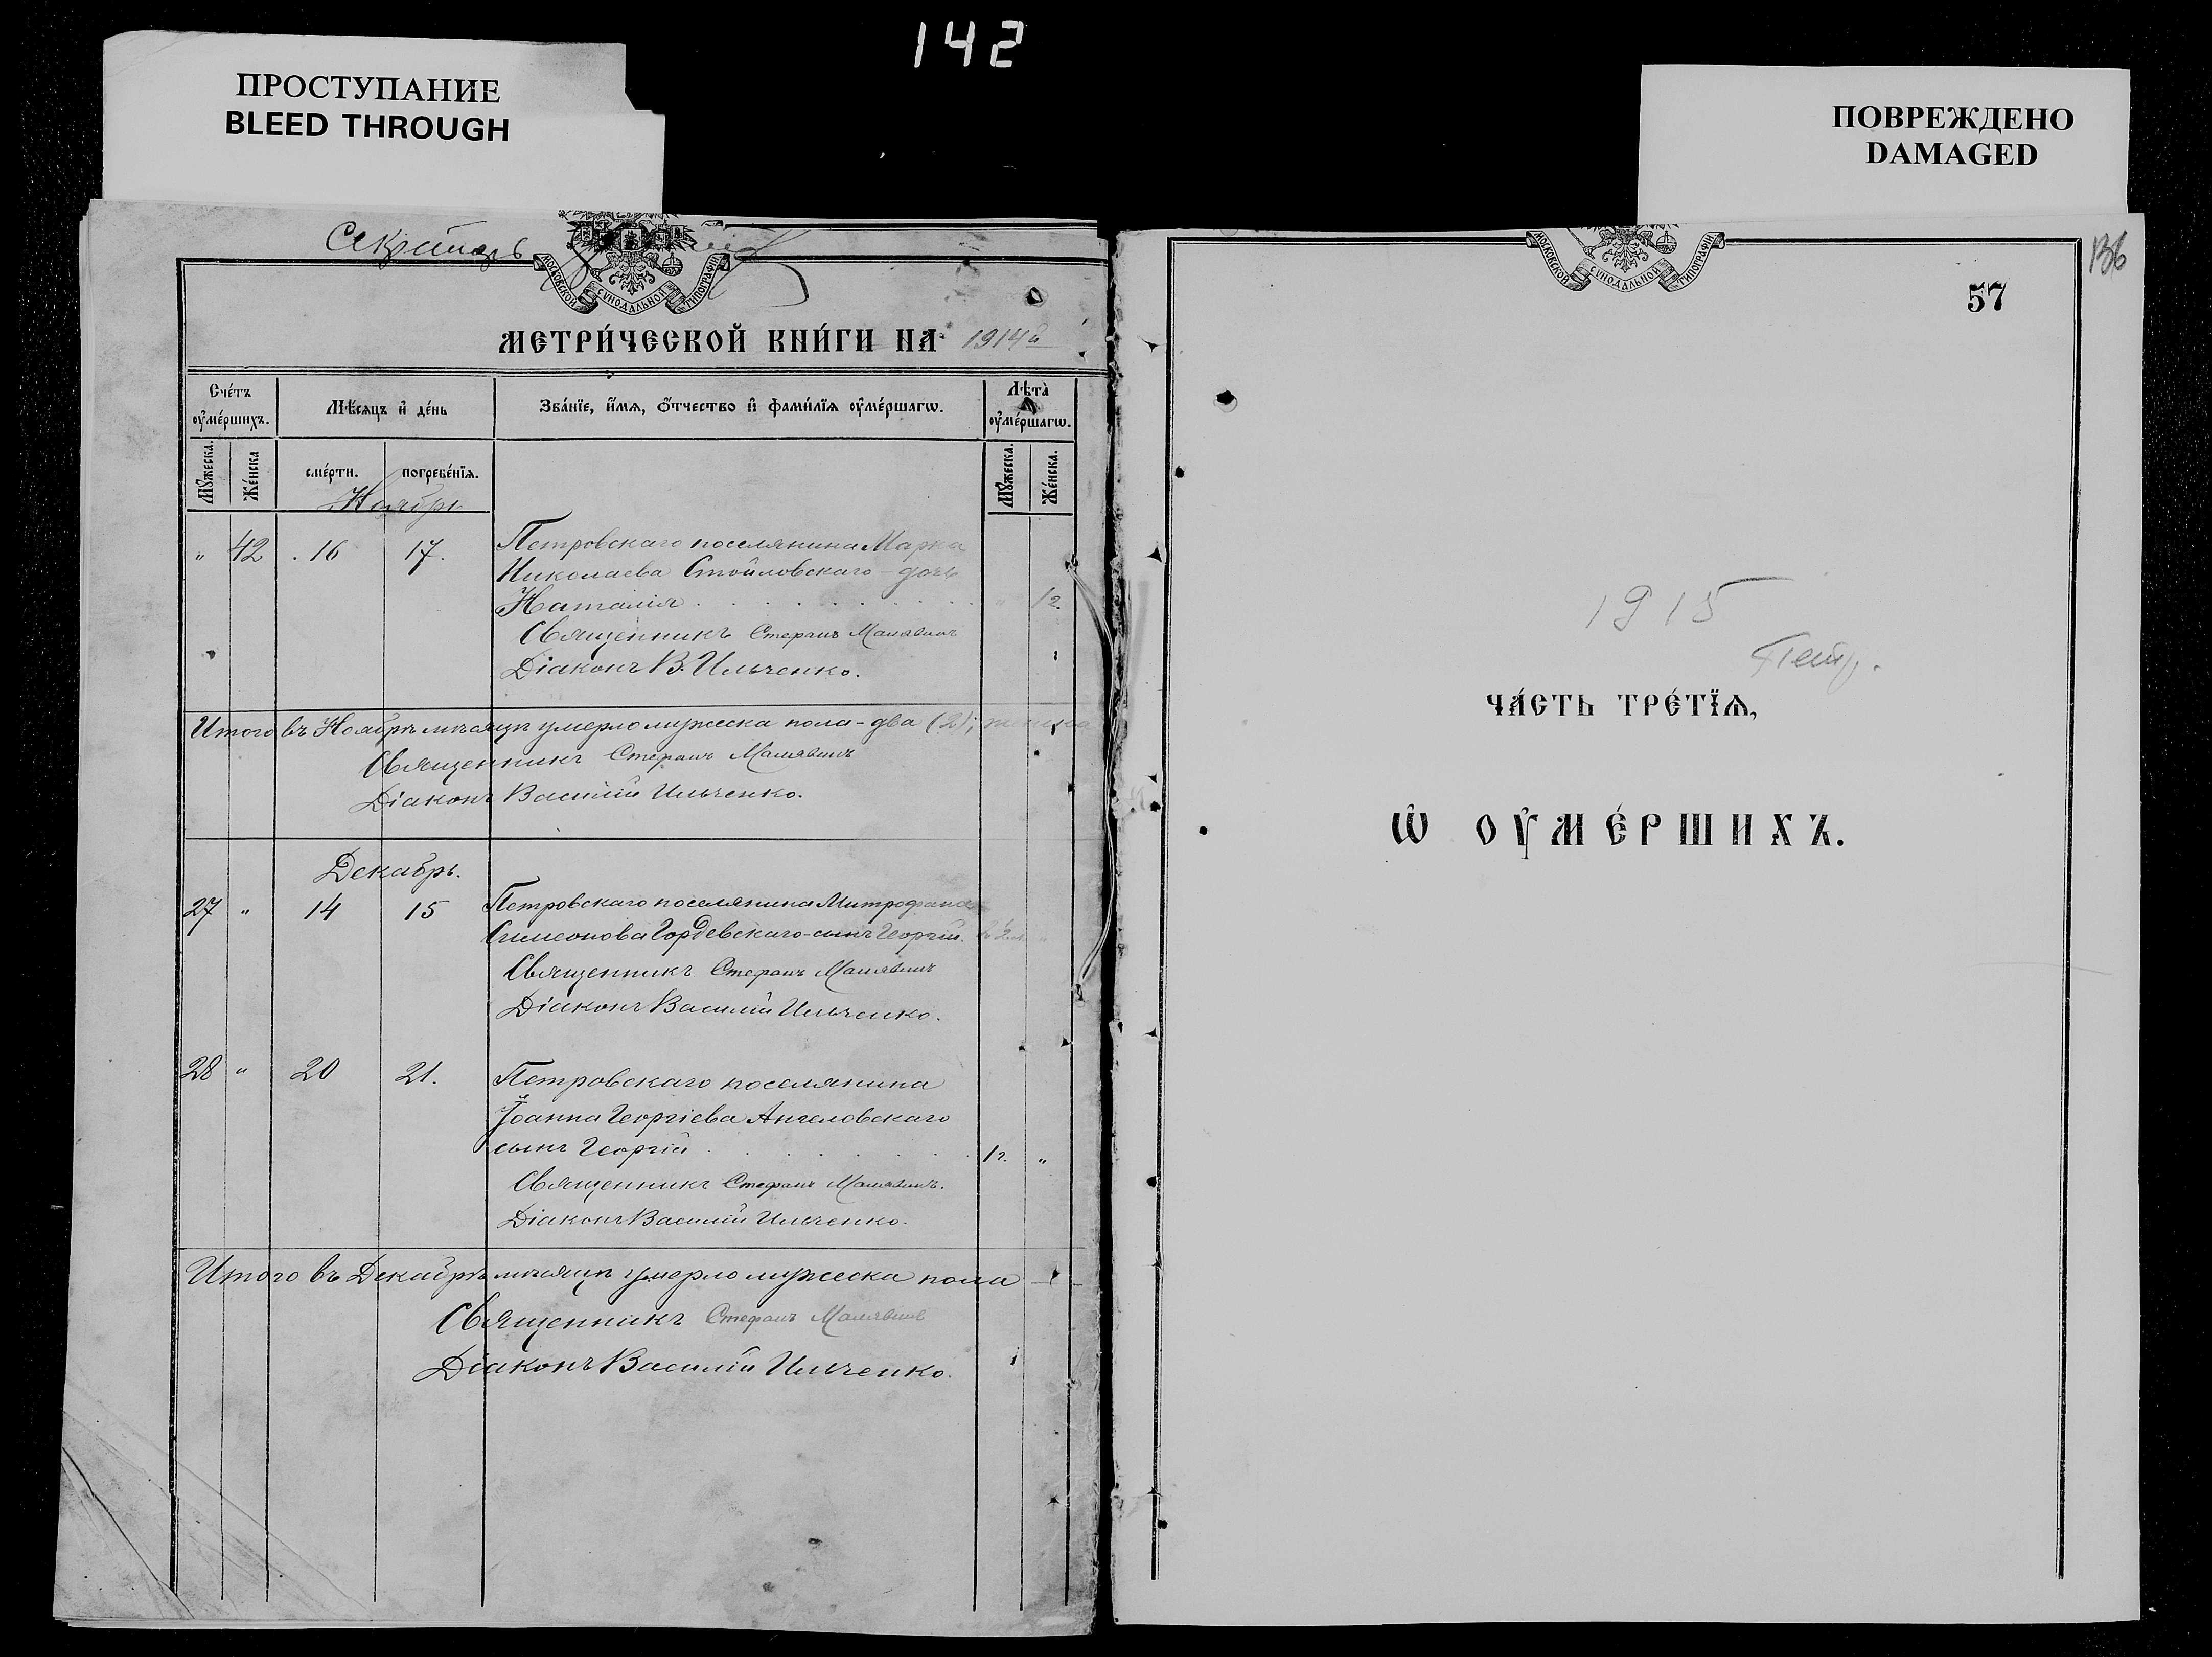 142
ПРОСТУПАНИЕ
BLEED THROUGH
ПОВРЕЖДЕНО
DAMAGED
Секретарь
МОСКОВСКОЙ СѴНОДАЛЬНОЙ ТИПОГРАФІИ
МЕТРИ́ЧЕСКОЙ КНИ́ГИ НА 1914й
Сче́тъ оу҆ме́ршихъ.
Мѣ́сяцъ и҆ де́нь
Зва́нїе, и҆́мѧ, ѻ҆́тчество и҆ фами́лїѧ оу҆ме́ршагѡ.
Лѣта̀ оу҆ме́ршагѡ.
Мꙋ́жеска.
Же́нска
сме́рти.
погребе́нїѧ.
Мꙋ́жеска.
Же́нска.
Ноябрь
" 42 16 17. Петровскаго поселянина Марка
Николаева Стойловскаго - дочь
Наталія . . . . . . . . . " 1 г.
Священникъ Стефанъ
Діаконъ В. Ильченко.
Итого въ Ноябрѣ мѣсяцѣ умерло мужеска пола - два (2); женска
Священникъ Стефанъ
Діаконъ Василій Ильченко.
Декабрь.
27 " 14 15 Петровскаго поселянина Митрофана
Симеонова Гордевскаго - сынъ Георгій.
Священникъ Стефанъ
Діаконъ Василій Ильченко.
28 " 20 21. Петровскаго поселянина
Іоанна Георгіева Ангеловскаго
сынъ Георгій . . . . . . . 1 г. "
Священникъ Стефанъ
Діаконъ Василій Ильченко.
Итого въ Декабрѣ мѣсяцѣ умерло мужеска пола
Священникъ Стефанъ
Діаконъ Василій Ильченко.
МОСКОВСКОЙ СѴНОДАЛЬНОЙ ТИПОГРАФІИ
136
57
1915
Петр.
ЧА́СТЬ ТРЕ́ТЇѦ,
Ѡ҆ ОУ҆МЕ́РШИХЪ.